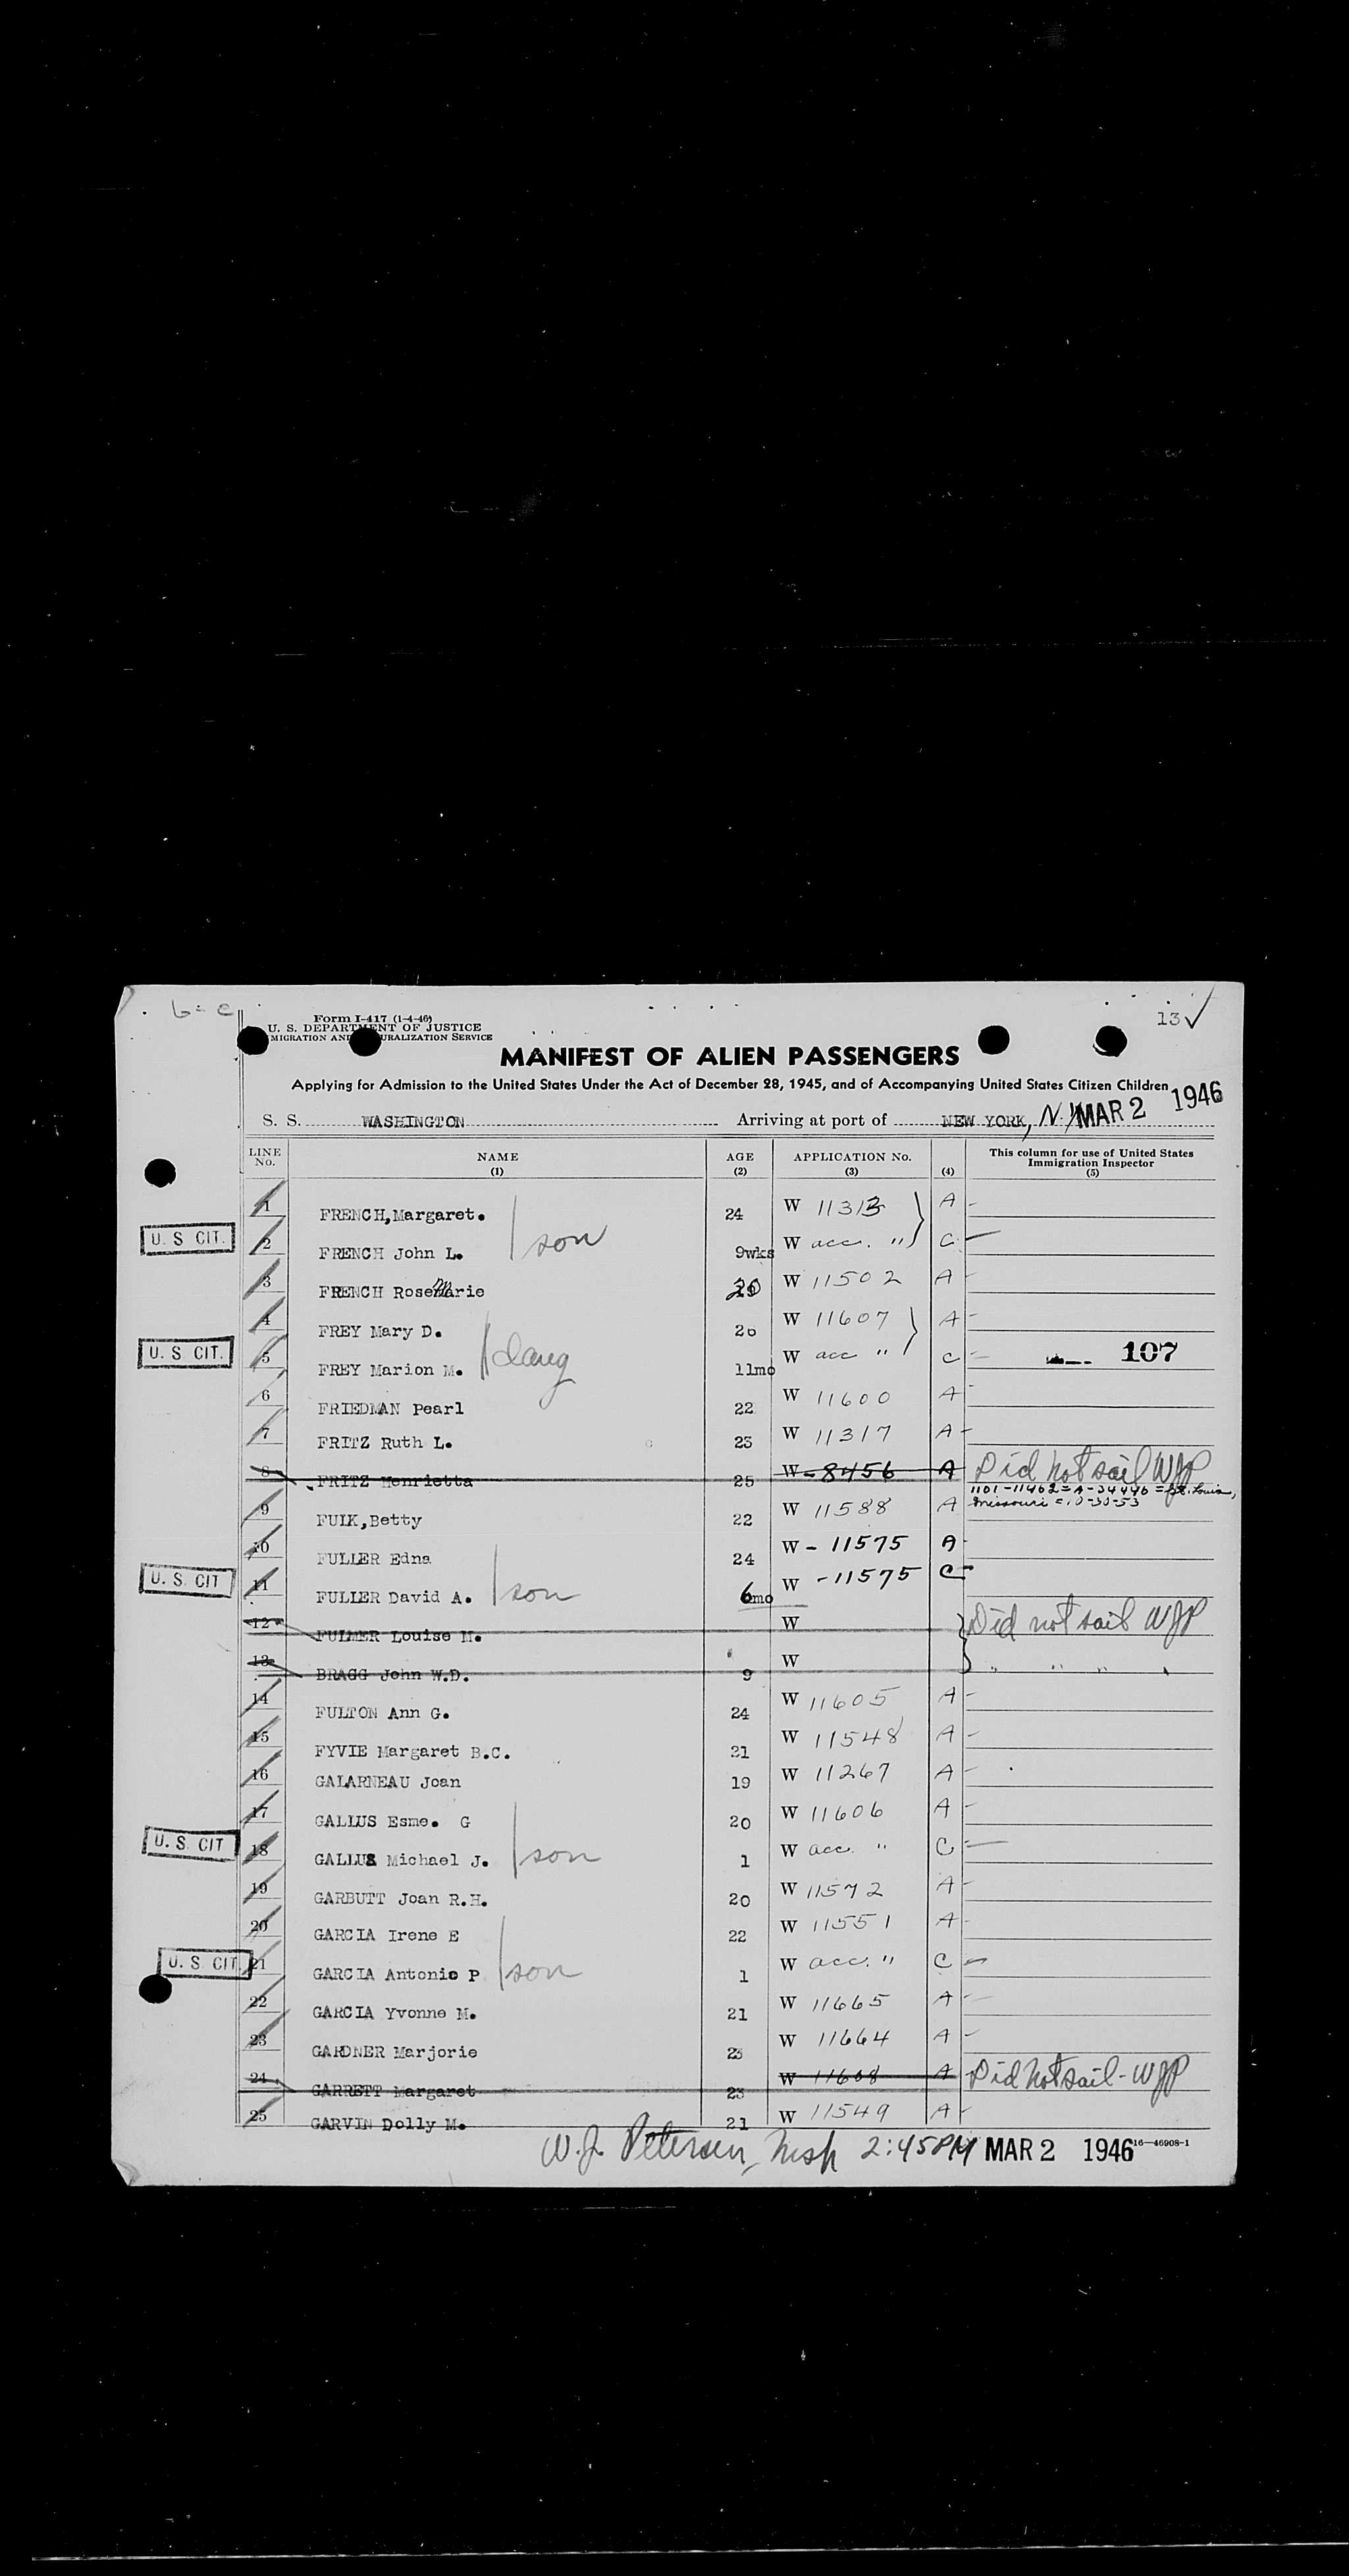 13 ✓
Form I-417 (1-4-46)
U. S. DEPARTMENT OF JUSTICE
MIGRATION AND URALIZATION SERVICE
MANIFEST OF ALIEN PASSENGERS
Applying for Admission to the United States Under the Act of December 28, 1945, and of Accompanying United States Citizen Children
S. S. WASHINGTON Arriving at port of NEW YORK, N.Y. MAR 2 1946
LINE No. NAME (1) AGE (2) APPLICATION No. (3) (4) This column for use of United States Immigration Inspector (5)
1 FRENCH, Margaret. 24 W 11313 A -
U. S. CIT. 2 FRENCH John L. son 9wks W acc. " C -
3 FRENCH RoseMarie 20 W 11502 A -
4 FREY Mary D. 20 W 11607 A -
U. S. CIT. 5 FREY Marion M. daug 11mo W acc " C - 107
6 FRIEDMAN Pearl 22 W 11600 A -
7 FRITZ Ruth L. 23 W 11317 A -
8 FRITZ Henrietta 25 W-8456 A Did not sail WJP
1101-11462=A-34446=St. Louis,
9 FUIK, Betty 22 W 11588 A Missouri = 10-30-53
10 FULLER Edna 24 W - 11575 A -
U. S. CIT 11 FULLER David A. son 6mo W - 11575 C -
12 FULLER Louise M. W Did not sail WJP
13 BRAGG John W.D. 9 W " " " "
14 FULTON Ann G. 24 W 11605 A -
15 FYVIE Margaret B.C. 21 W 11548 A -
16 GALARNEAU Joan 19 W 11267 A -
17 GALLUS Esme. G 20 W 11606 A -
U. S. CIT 18 GALLUS Michael J. son 1 W acc. " C -
19 GARBUTT Joan R.H. 20 W 11572 A -
20 GARCIA Irene E 22 W 11551 A -
U. S. CIT. 21 GARCIA Antonio P son 1 W acc. " C -
22 GARCIA Yvonne M. 21 W 11665 A -
23 GARDNER Marjorie 23 W 11664 A -
24 GARRETT Margaret 23 W 11608 A Did not sail - WJP
25 GARVIN Dolly M. 21 W 11549 A -
W. J. Petersen, Insp 2:45 PM MAR 2 1946 16—46908-1